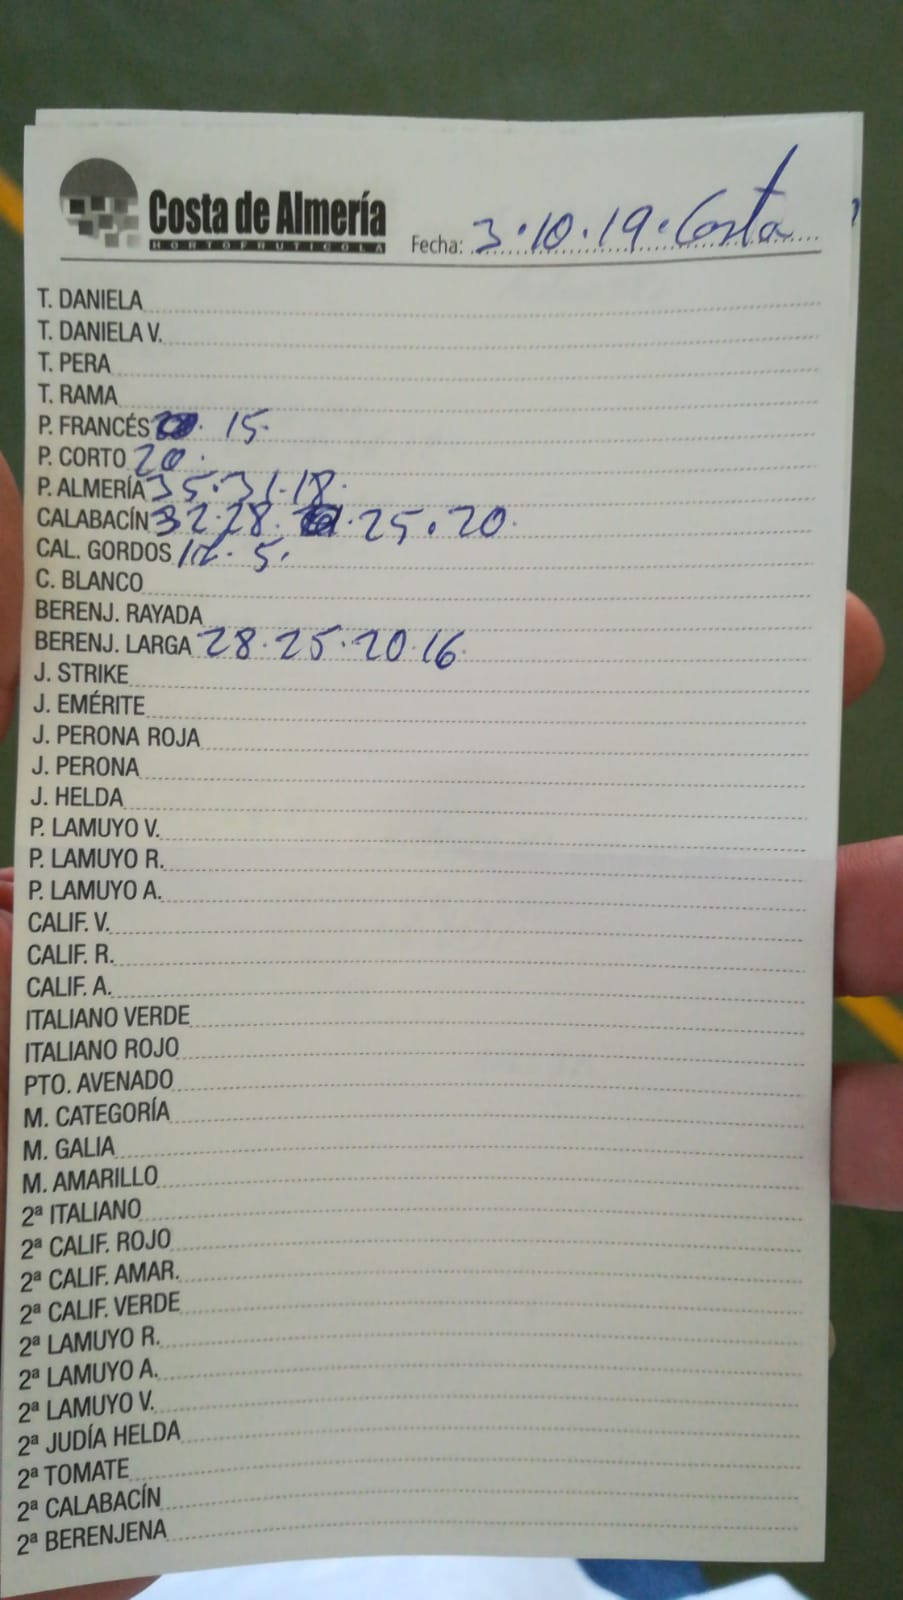 Costa de Almería
HORTOFRUTICOLA
Fecha: 3.10.19. Costa
T. DANIELA
T. DANIELA V.
T. PERA
T. RAMA
P. FRANCÉS 15.
P. CORTO 20.
P. ALMERÍA 35.31.18.
CALABACÍN 32.28. 25.20.
CAL. GORDOS 5.
C. BLANCO
BERENJ. RAYADA
BERENJ. LARGA 28.25.20.16.
J. STRIKE
J. EMÉRITE
J. PERONA ROJA
J. PERONA
J. HELDA
P. LAMUYO V.
P. LAMUYO R.
P. LAMUYO A.
CALIF. V.
CALIF. R.
CALIF. A.
ITALIANO VERDE
ITALIANO ROJO
PTO. AVENADO
M. CATEGORÍA
M. GALIA
M. AMARILLO
2ª ITALIANO
2ª CALIF. ROJO
2ª CALIF. AMAR.
2ª CALIF. VERDE
2ª LAMUYO R.
2ª LAMUYO A.
2ª LAMUYO V.
2ª JUDÍA HELDA
2ª TOMATE
2ª CALABACÍN
2ª BERENJENA